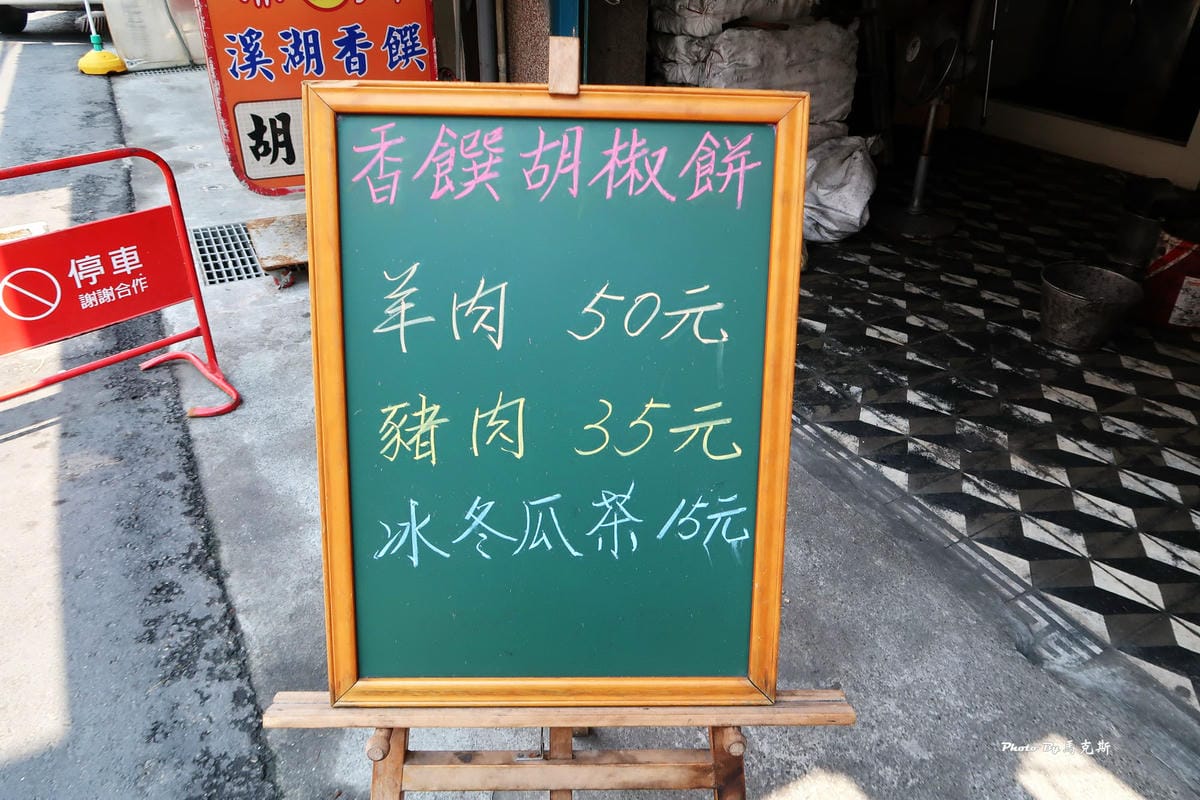 溪湖香饌
胡
香饌胡椒餅
羊肉 50元
豬肉 35元
冰冬瓜茶 15元
停車
謝謝合作
Photo By 馬克斯